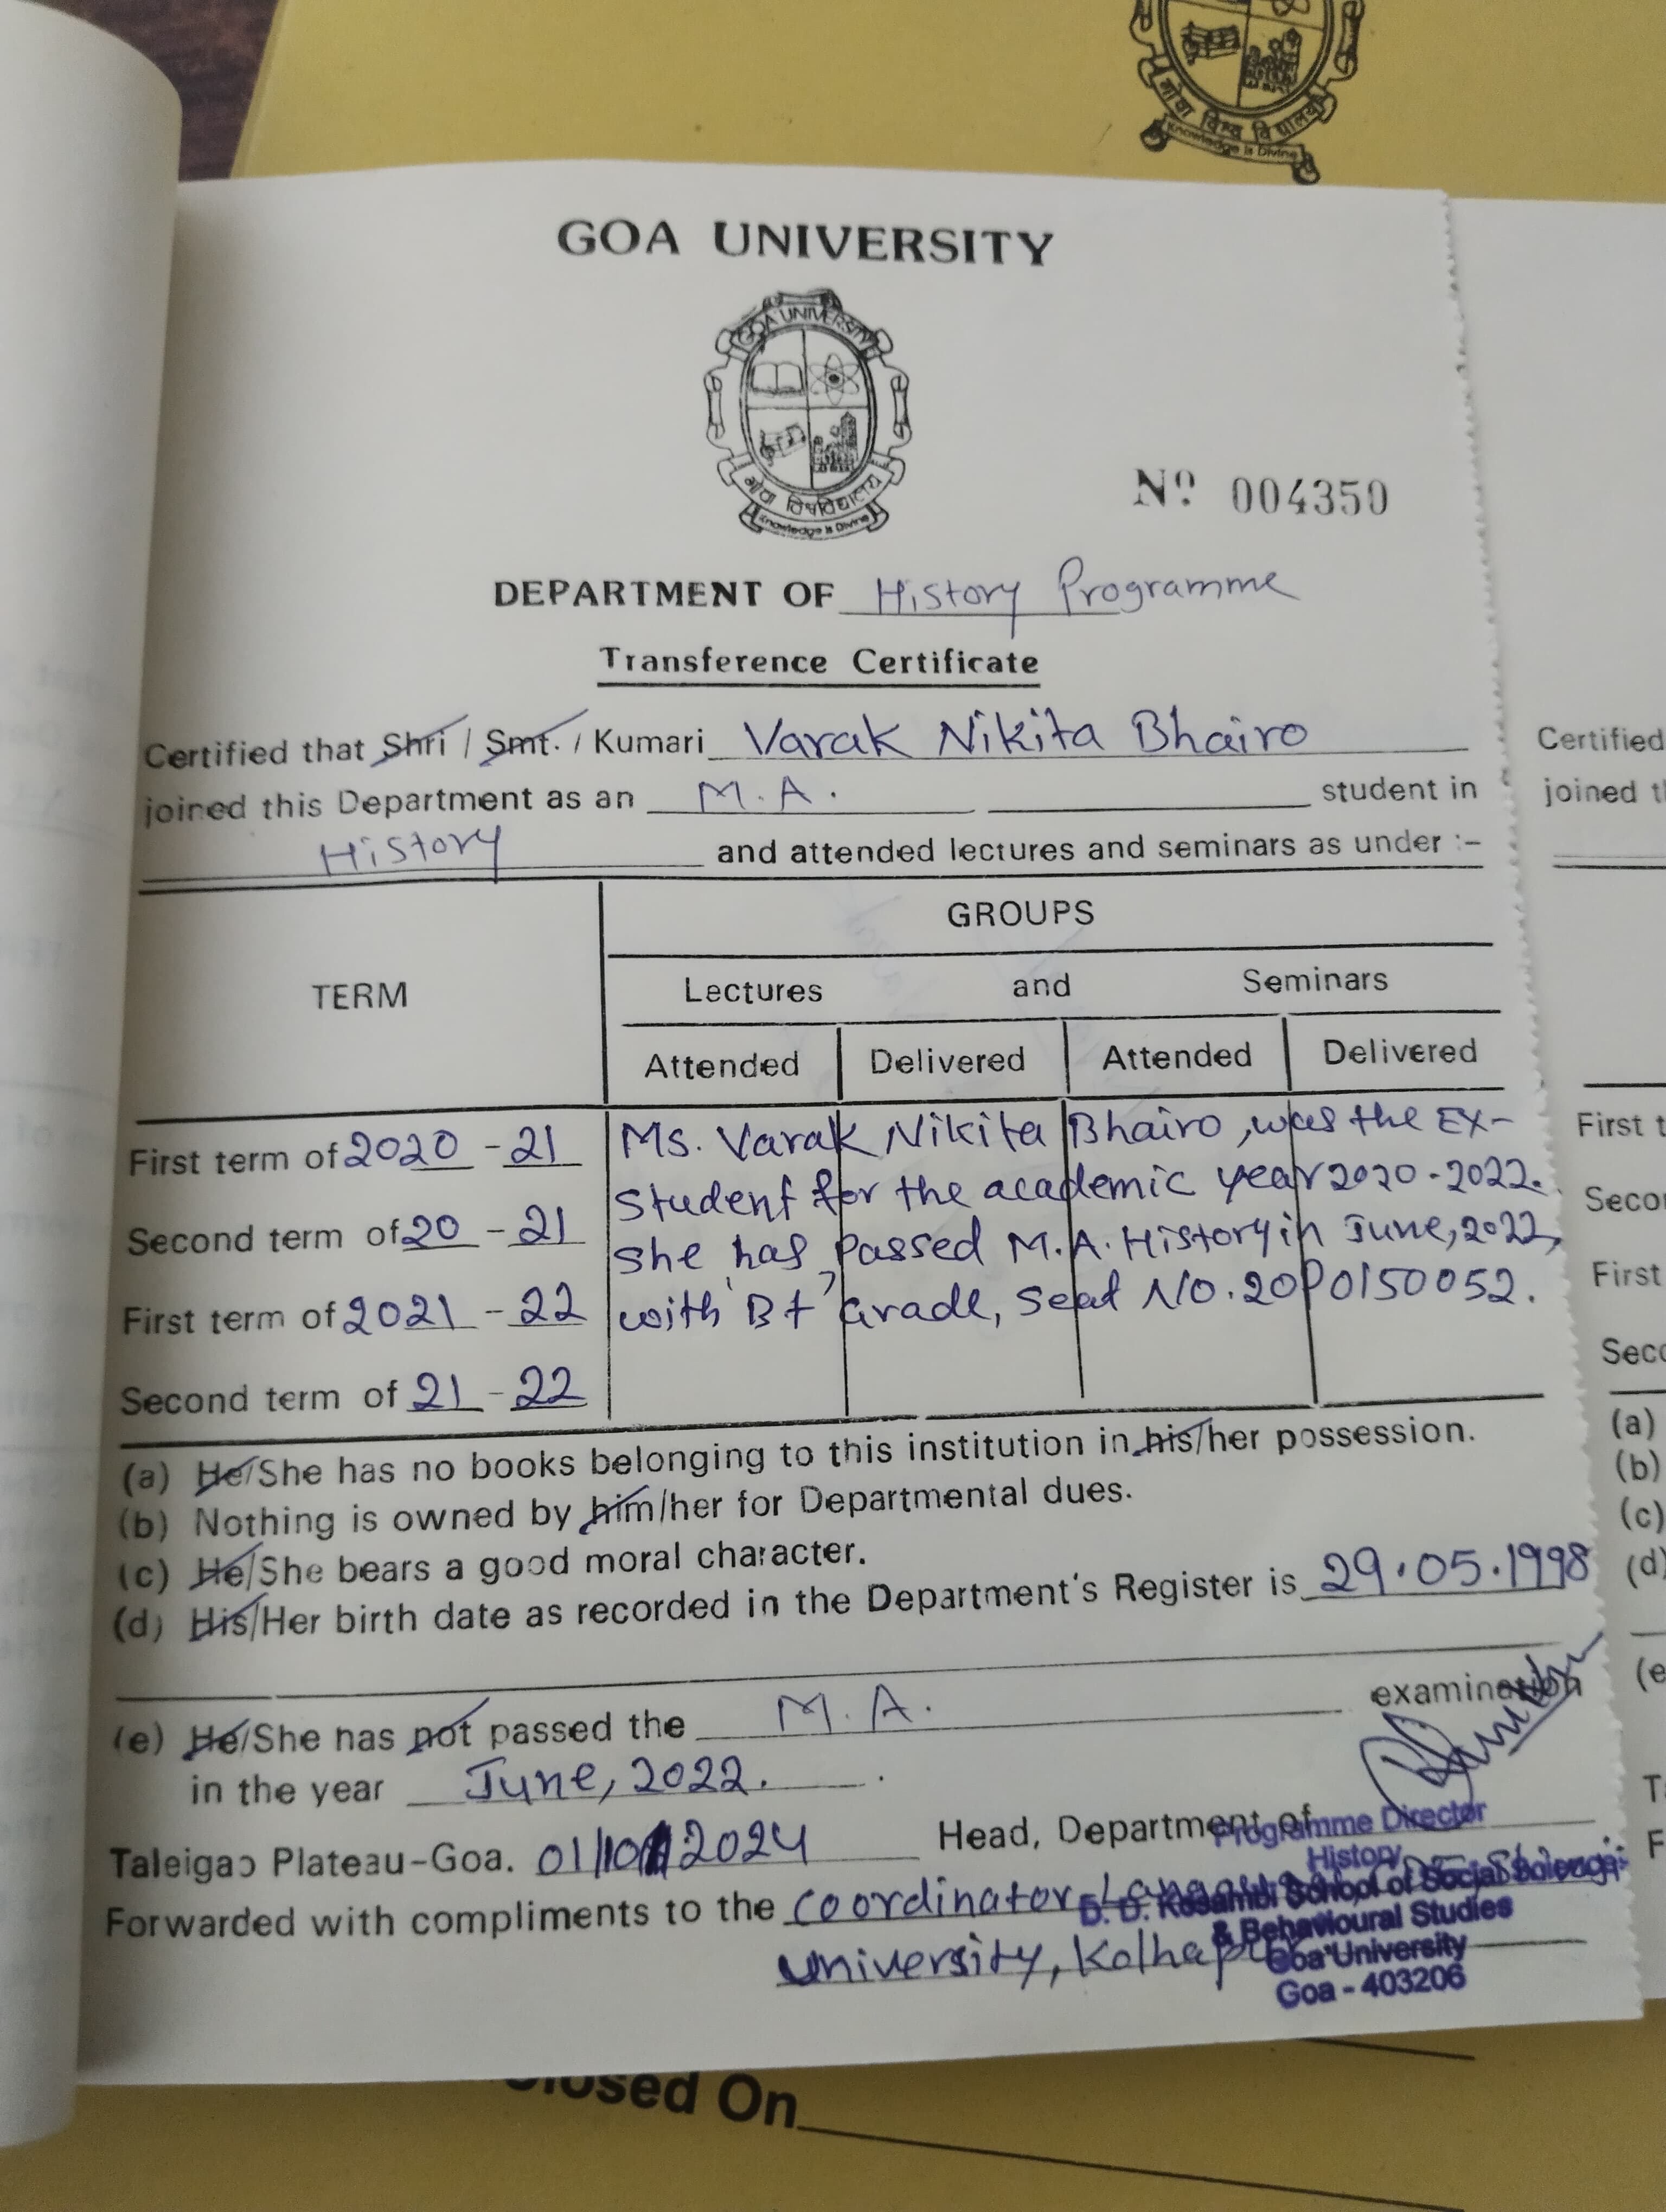 गोवा विश्व विद्यालय
Knowledge is Divine
GOA UNIVERSITY
GOA UNIVERSITY
गोवा विश्वविद्यालय
Knowledge is Divine
Nº 004350
DEPARTMENT OF History Programme
Transference Certificate
Certified that Shri / Smt. / Kumari Varak Nikita Bhairo
joined this Department as an M.A. student in
History and attended lectures and seminars as under :-
GROUPS
TERM
Lectures and Seminars
Attended Delivered Attended Delivered
First term of 2020 - 21
Second term of 20 - 21
First term of 2021 - 22
Second term of 21 - 22
Ms. Varak Nikita Bhairo, was the Ex-
Student for the academic year 2020-2022.
She has passed M.A. History in June, 2022,
with 'B+' Grade, Seat No. 20P0150052.
(a) He/She has no books belonging to this institution in his/her possession.
(b) Nothing is owned by him/her for Departmental dues.
(c) He/She bears a good moral character.
(d) His/Her birth date as recorded in the Department's Register is 29.05.1998
(e) He/She has not passed the M.A. examination
in the year June, 2022.
Taleigao Plateau-Goa. 01/10/2024 Head, Department of
Forwarded with compliments to the Coordinator
University, Kolhapur
Programme Director
History
D. D. Kosambi School of Social Sciences
& Behavioural Studies
Goa University
Goa - 403206
Certified
joined
First
First
(a)
(b)
(c)
(d)
Closed On